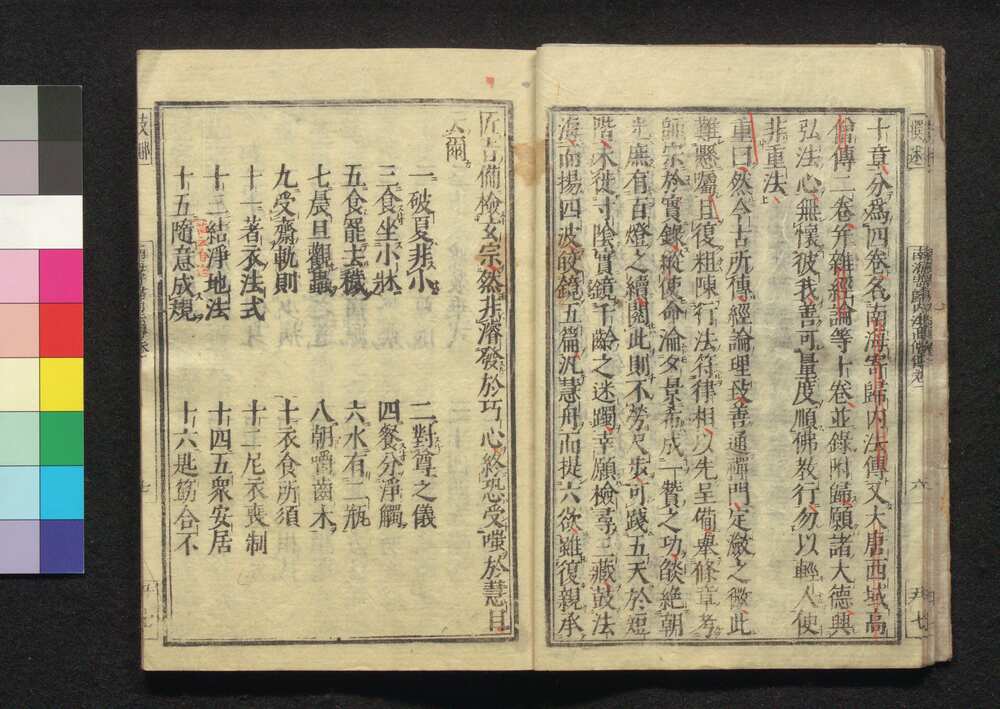 十章分為四卷名南海寄歸內法傳又大唐西域高
僧傳二卷并雜經論等十卷並錄附歸願諸大德興
弘法心無懷彼我善可量度順佛教行勿以輕人便
非重法
重曰然今古所傳經論理致善通禪門定瀲之微此
難懸囑且復粗陳行法符律相以先呈備舉條章考
師宗於實錄縱使命淪夕景希成一簣之功燄絕朝
光庶有百燈之續閱此則不勞尺步可踐五天於短
階未徙寸陰實鏡千齡之迷躅幸願檢尋三藏鼓法
海而揚四波皎鏡五篇汎慧舟而提六欲雖復親承
匠旨備檢玄宗然非濬發於巧心終恐受嗤於慧目
云爾
一破夏非小
二對尊之儀
三食坐小牀
四餐分淨觸
五食罷去穢
六水有二瓶
七晨旦觀蟲
八朝嚼齒木
九受齋軌則
十衣食所須
十一著衣法式
十二尼衣喪制
十三結淨地法
十四五眾安居
十五隨意成規
十六匙筯合不